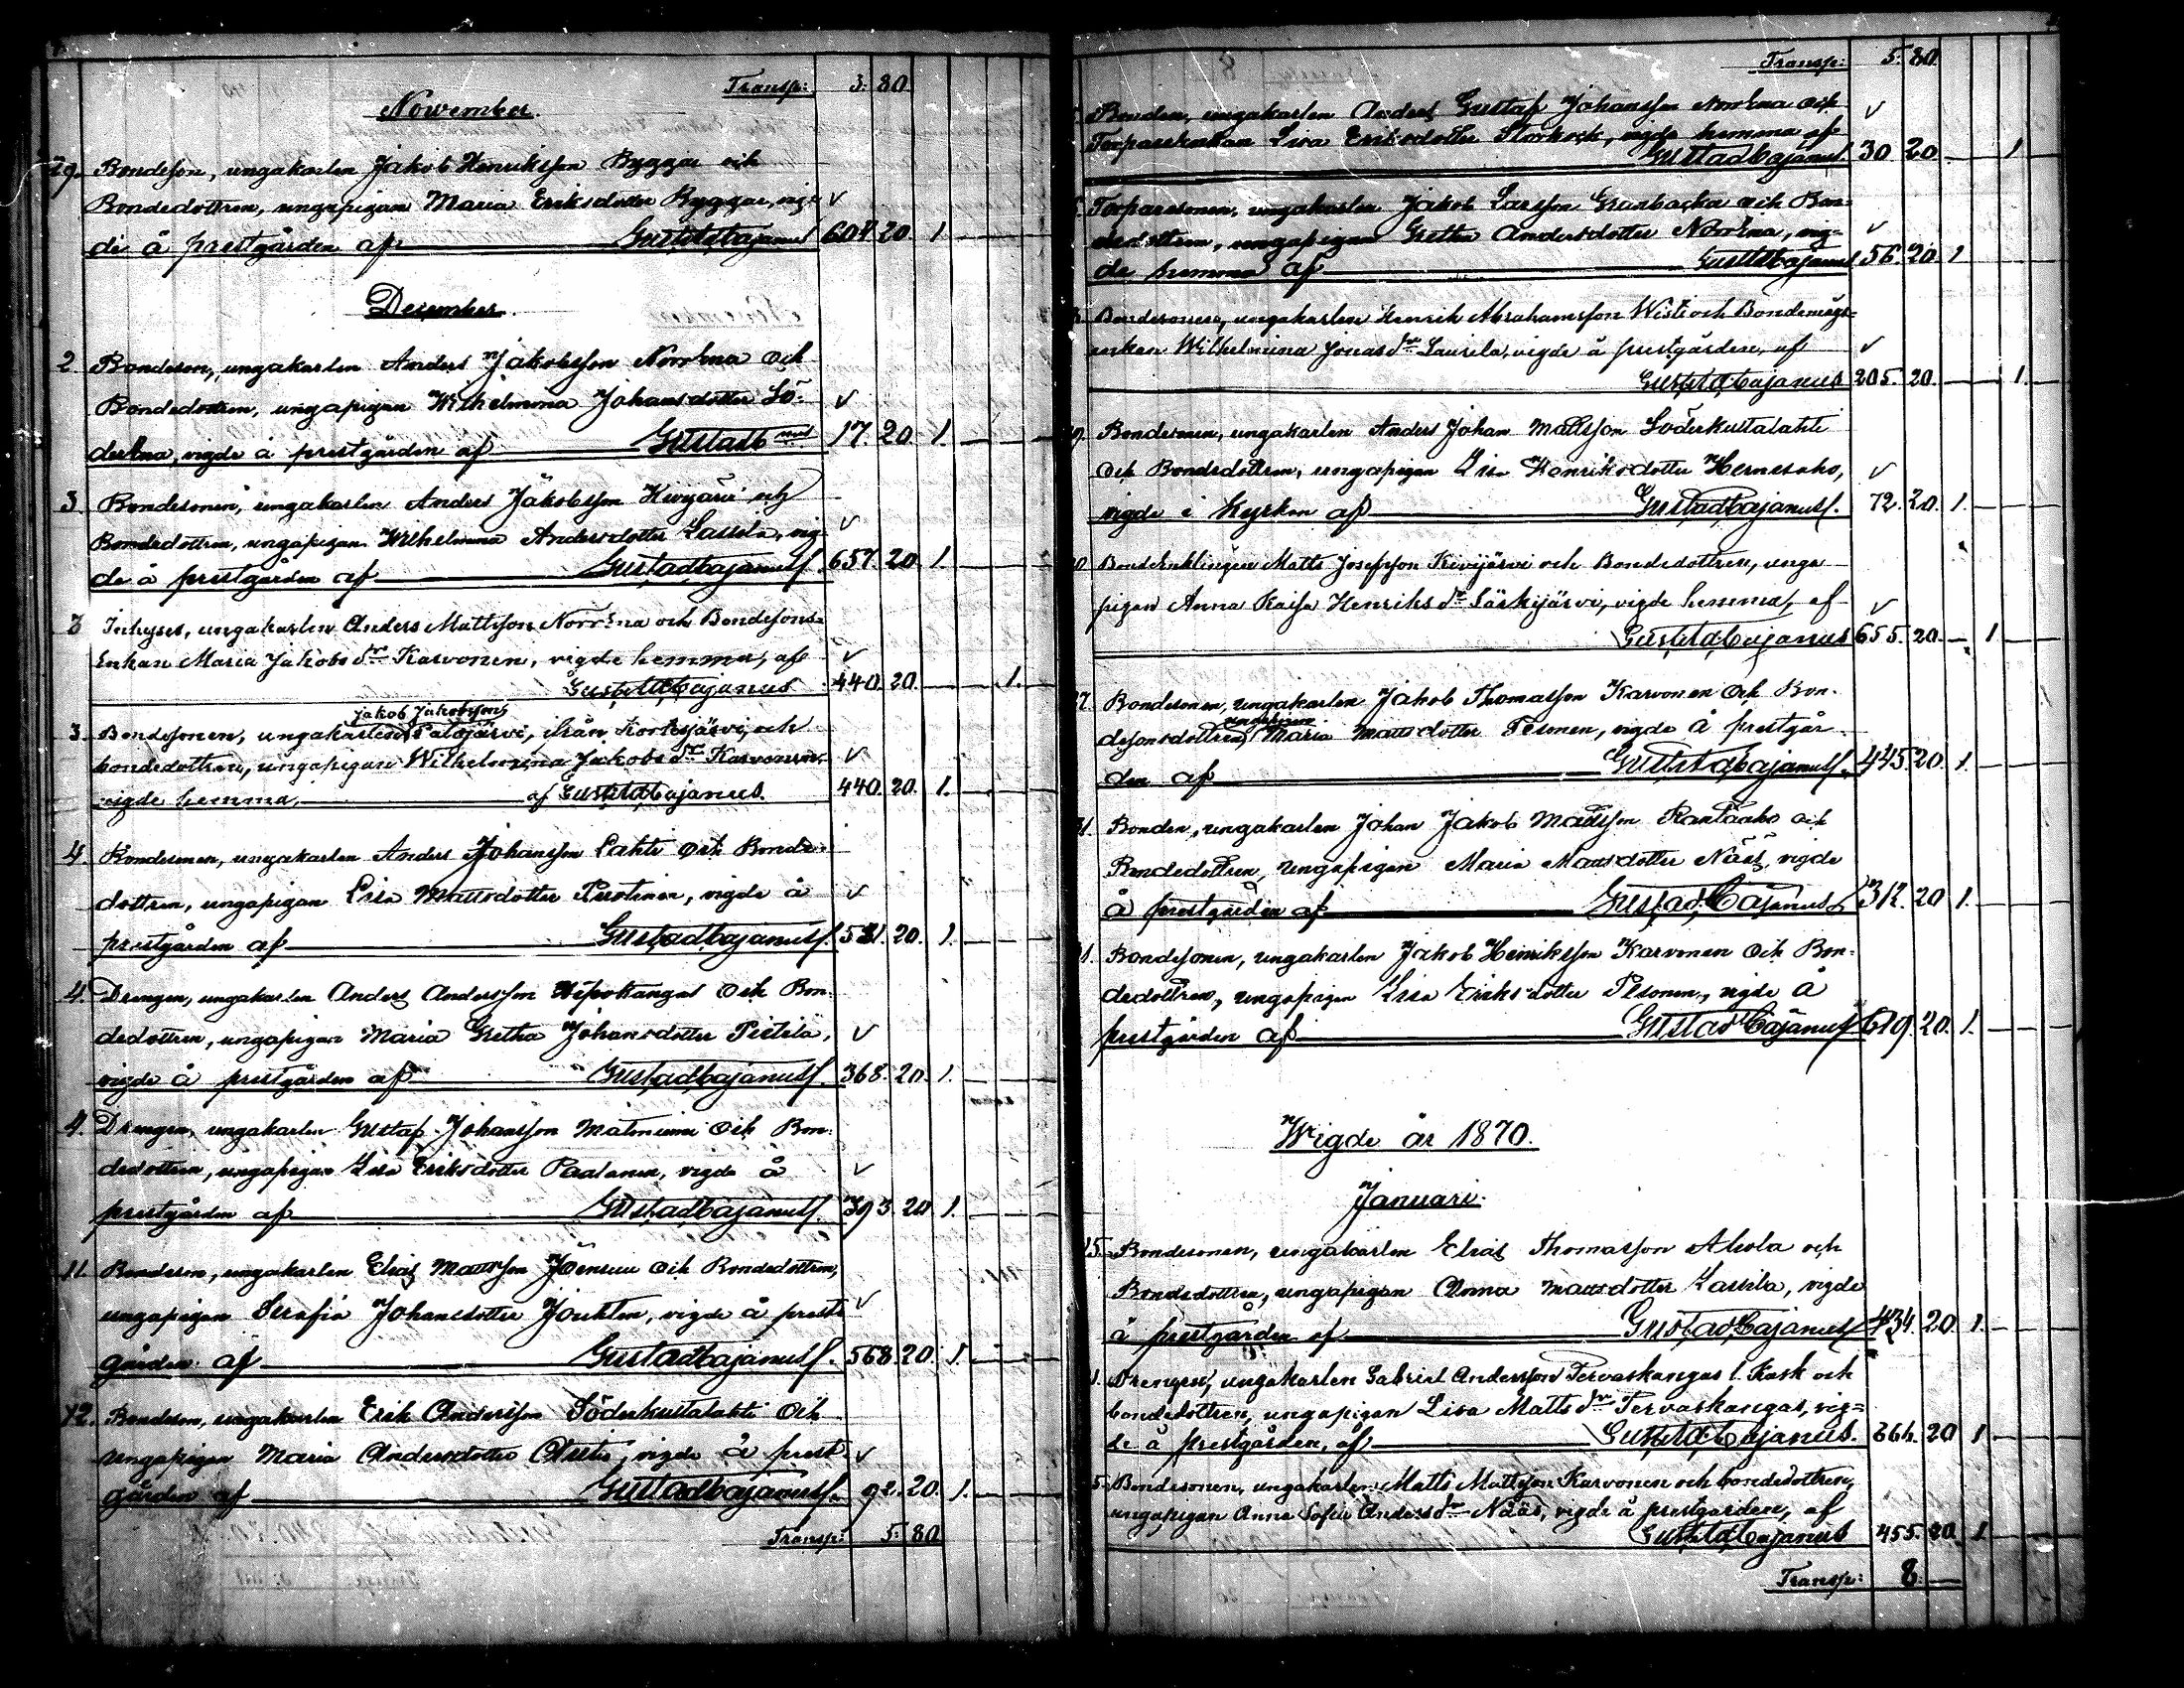 Transp: 3. 80.
November.
29. Bondeson, ungakarlen Jakob Henriksson Byggar och
Bondedottren, ungapigan Maria Eriksdotter Byggar, vig- ✓
de å prestgården af Gust Ad Cajanus 607. 20. 1.
December.
2. Bondeson, ungakarlen Anders Jakobsson Norrena och
Bondedottren, ungapigan Wilhelmina Johansdotter Sö- ✓
derena, vigde å prestgården af Gust Ad C nus 17. 20. 1.
3. Bondesonen, ungakarlen Anders Jakobsson Kivijärvi och
Bondedottren, ungapigan Wilhelmina Andersdotter Lassila, vig- ✓
de å prestgården af Gust Ad Cajanus. 657. 20. 1.
3 Inhyses, ungakarlen Anders Mattsson Norrena och Bondesons-
Enkan Maria Jakobs dr Karvonen, vigde hemma, af ✓
Gust Ad Cajanus 440. 20. 1.
Jakob Jakobsson
3. Bondesonen, ungakarlen Palojärvi, från Kortesjärvi, och
bondedottren, ungapigan Wilhelmina Jakobs dr Karvonen, ✓
vigde hemma, af Gust Ad Cajanus. 440. 20. 1.
4. Bondesonen, ungakarlen Anders Johansson Lahti och Bonde-
dottren, ungapigan Lisa Mattsdotter Puotinen, vigde å ✓
prestgården af Gust Ad Cajanus. 531. 20. 1.
4. Drengen, ungakarlen Anders Andersson Hipokangas och Bon-
dedottren, ungapigan Maria Gretha Johansdotter Pistila, ✓
vigde å prestgården af Gust Ad Cajanus. 368. 20. 1.
4. Drengen, ungakarlen Gustaf Johansson Matoniemi och Bon-
dedottren, ungapigan Lisa Eriksdotter Paalanen, vigde å ✓
prestgården af Gust Ad Cajanus. 393. 20 1.
11. Bondeson, ungakarlen Elias Mattsson Joensuu och Bondedottren,
ungapigan Serafia Johansdotter Jouhten, vigde å prest- ✓
gården af Gust Ad Cajanus. 568. 20. 1.
12. Bondeson, ungakarlen Erik Andersson Söderkultalahti och
ungapigan Maria Andersdotter, vigde å prest- ✓
gården af Gust Ad Cajanus. 92. 20. 1.
Transp: 5. 80
Transp: 5. 80.
Bonden, ungakarlen Anders Gustaf Johansson Norrena och ✓
Torpareenkan Lisa Eriksdotter Storkock, vigde hemma af
Gust Ad Cajanus. 30 20 1
Torparesonen, ungakarlen Jakob Larsson Granbacka och Bon-
dedottren, ungapigan Gretha Andersdotter Norrena, vig- ✓
de hemma af Gust Ad Cajanus 56. 20. 1
Bondesonen, ungakarlen Henrik Abrahamsson Wisti och Bondemågs-
enkan Wilhelmina Jonas dr Saurela, vigde å prestgården, af ✓
Gust Ad Cajanus 205. 20. 1.
Bondesonen, ungakarlen Anders Johan Mattsson Söderkultalahti
och Bondedottren, ungapigan Lisa Henriksdotter Hernesaho, ✓
vigde i kyrkan af Gust Ad Cajanus. 72. 20. 1.
Bondeenklingen Matts Josefsson Kivijärvi och Bondedottren, unga-
pigan Anna Kaisa Henriks dr Särkijärvi, vigde hemma, af ✓
Gust Ad Cajanus 655. 20. 1
27. Bondesonen, ungakarlen Jakob Thomasson Karvonen och Bon-
ungapigan
desonsdottren, Maria Mattsdotter Pesonen, vigde å prestgår-
den af Gust Ad Cajanus. 445. 20. 1.
31. Bonden, ungakarlen Johan Jakob Mattsson Rantaaho och
Bondedottren, ungapigan Maria Mattsdotter Nääs, vigde
å prestgården af Gust Ad Cajanus 312. 20 1.
31. Bondesonen, ungakarlen Jakob Henriksson Karvonen och Bon-
dedottren, ungapigan Lisa Eriksdotter Pesonen, vigde å
prestgården af Gust Ad Cajanus 619. 20. 1.
Wigde år 1870.
Januari.
15. Bondesonen, ungakarlen Elias Thomasson Ahola och
Bondedottren, ungapigan Anna Mattsdotter Lassila, vigde
å prestgården af Gust Ad Cajanus 434. 20. 1.
Drengen, ungakarlen Gabriel Andersson Tervaskangas l. Kask och
bondedottren, ungapigan Lisa Matts dr Tervaskangas, vig-
de å prestgården, af Gust Ad Cajanus. 364. 20 1
5. Bondesonen, ungakarlen Matts Mattsson Karvonen och bondedottren,
ungapigan Anna Sofia Anders dr Nääs, vigde å prestgården, af
Gust Ad Cajanus 455. 20. 1
Transp: 8. —